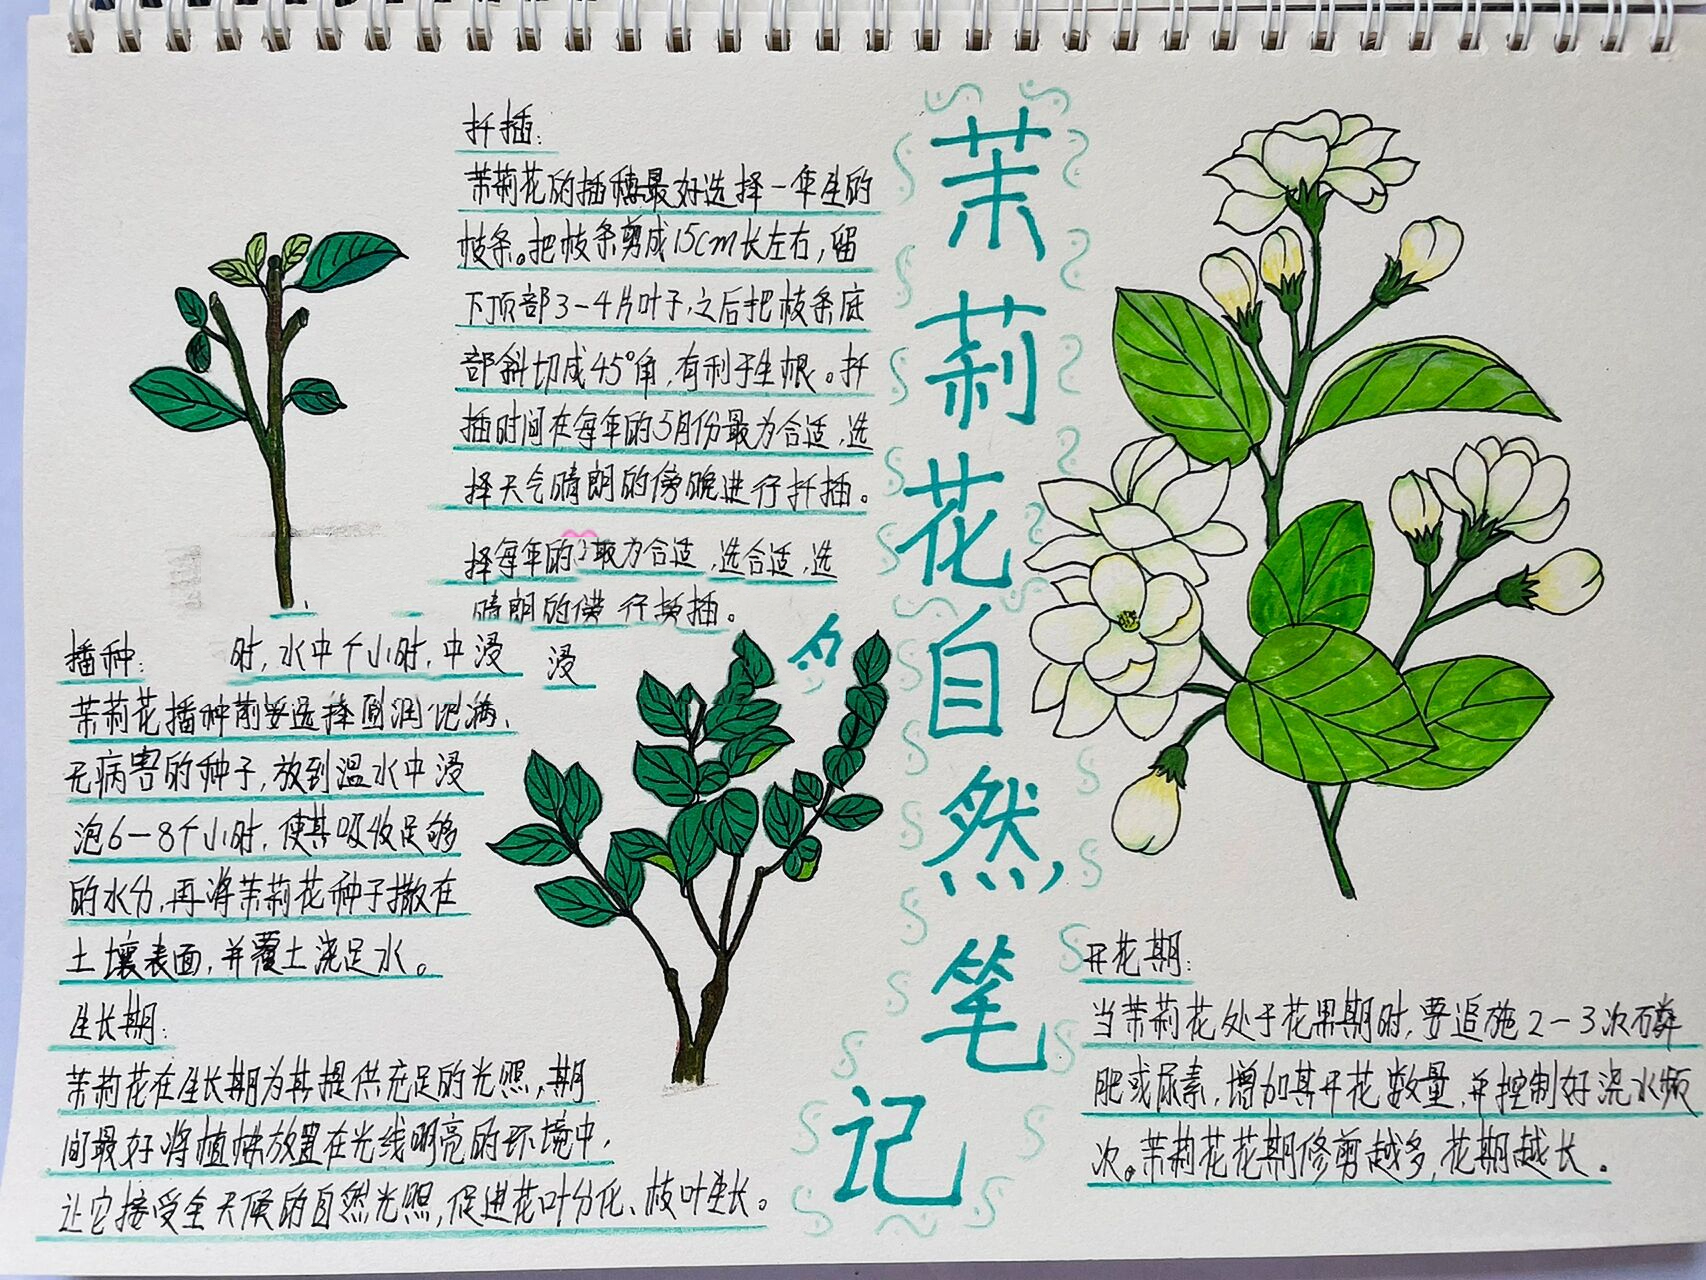 茉莉花自然笔记
扦插：
茉莉花的插穗最好选择一年生的
枝条。把枝条剪成15cm长左右，留
下顶部3-4片叶子，之后把枝条底
部斜切成45°角，有利于生根。扦
插时间在每年的5月份最为合适，选
择天气晴朗的傍晚进行扦插。
择每年的 最为合适，选合适，选
晴朗的 行 插。
播种：
时，水中个小时，中浸 浸
茉莉花播种前要选择圆润饱满、
无病害的种子，放到温水中浸
泡6-8个小时，使其吸收足够
的水分，再将茉莉花种子撒在
土壤表面，并覆土浇足水。
生长期：
茉莉花在生长期为其提供充足的光照，期
间最好将植株放置在光线明亮的环境中，
让它接受全天候的自然光照，促进花叶分化、枝叶生长。
开花期：
当茉莉花处于花果期时，要追施2-3次磷
肥或尿素，增加其开花数量，并控制好浇水频
次。茉莉花花期修剪越多，花期越长。